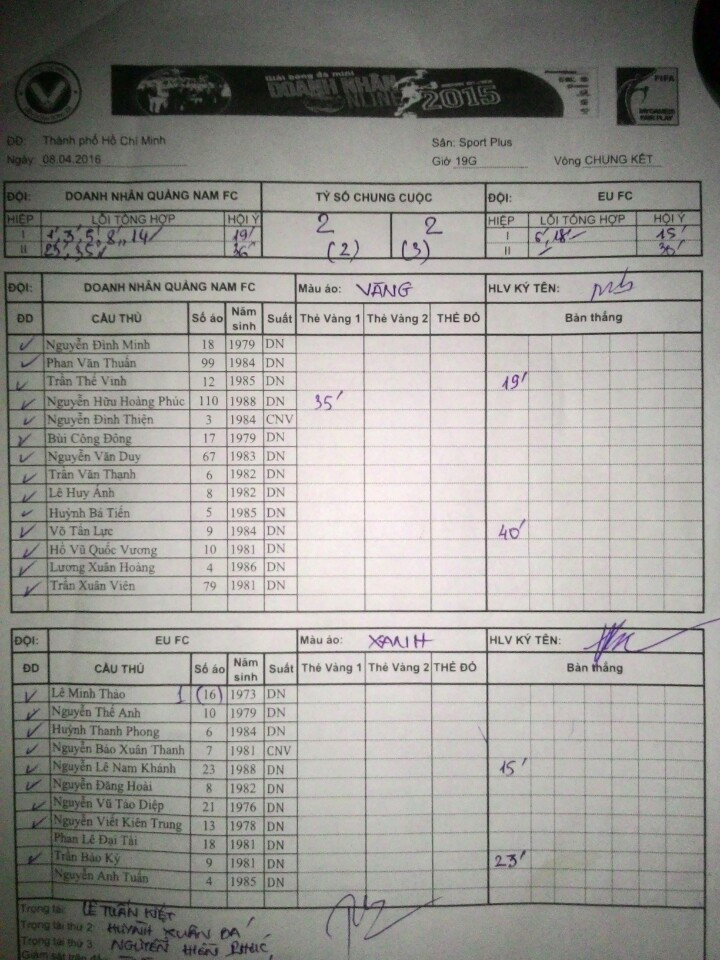 Giải bóng đá mini
DOANH NHÂN
NLINE 2015
FIFA
MY GAME IS FAIR PLAY
ĐĐ: Thành phố Hồ Chí Minh Sân: Sport Plus
Ngày: 08.04.2016 Giờ 19G Vòng CHUNG KẾT
ĐỘI: DOANH NHÂN QUẢNG NAM FC TỶ SỐ CHUNG CUỘC ĐỘI: EU FC
HIỆP LỖI TỔNG HỢP HỘI Ý 2 2 HIỆP LỖI TỔNG HỢP HỘI Ý
I 1', 3', 5', 8', 14' 19' I 6', 18' 15'
II 23', 35' 36' (2) (3) II 30'
ĐỘI: DOANH NHÂN QUẢNG NAM FC Màu áo: VÀNG HLV KÝ TÊN:
ĐD CẦU THỦ Số áo Năm sinh Suất Thẻ Vàng 1 Thẻ Vàng 2 THẺ ĐỎ Bàn thắng
Nguyễn Đình Minh 18 1979 DN
Phan Văn Thuấn 99 1984 DN
Trần Thế Vinh 12 1985 DN 19'
Nguyễn Hữu Hoàng Phúc 110 1988 DN 35'
Nguyễn Đình Thiện 3 1984 CNV
Bùi Công Đông 17 1979 DN
Nguyễn Văn Duy 67 1983 DN
Trần Văn Thạnh 6 1982 DN
Lê Huy Ánh 8 1982 DN
Huỳnh Bá Tiến 5 1985 DN
Võ Tấn Lực 9 1984 DN 40'
Hồ Vũ Quốc Vương 10 1981 DN
Lương Xuân Hoàng 4 1986 DN
Trần Xuân Viên 79 1981 DN
ĐỘI: EU FC Màu áo: XANH HLV KÝ TÊN:
ĐD CẦU THỦ Số áo Năm sinh Suất Thẻ Vàng 1 Thẻ Vàng 2 THẺ ĐỎ Bàn thắng
Lê Minh Thảo 1 (16) 1973 DN
Nguyễn Thế Anh 10 1979 DN
Huỳnh Thanh Phong 6 1984 DN
Nguyễn Bảo Xuân Thanh 7 1981 CNV
Nguyễn Lê Nam Khánh 23 1988 DN 15'
Nguyễn Đăng Hoài 8 1982 DN
Nguyễn Vũ Tảo Diệp 21 1976 DN
Nguyễn Viết Kiên Trung 13 1978 DN
Phan Lê Đại Tài 18 1981 DN
Trần Bảo Kỳ 9 1981 DN 23'
Nguyễn Anh Tuấn 4 1985 DN
Trọng tài: LÊ TUẤN KIỆT
Trọng tài thứ 2: HUỲNH XUÂN ĐÁ
Trọng tài thứ 3: NGUYỄN HIỀN PHÚC